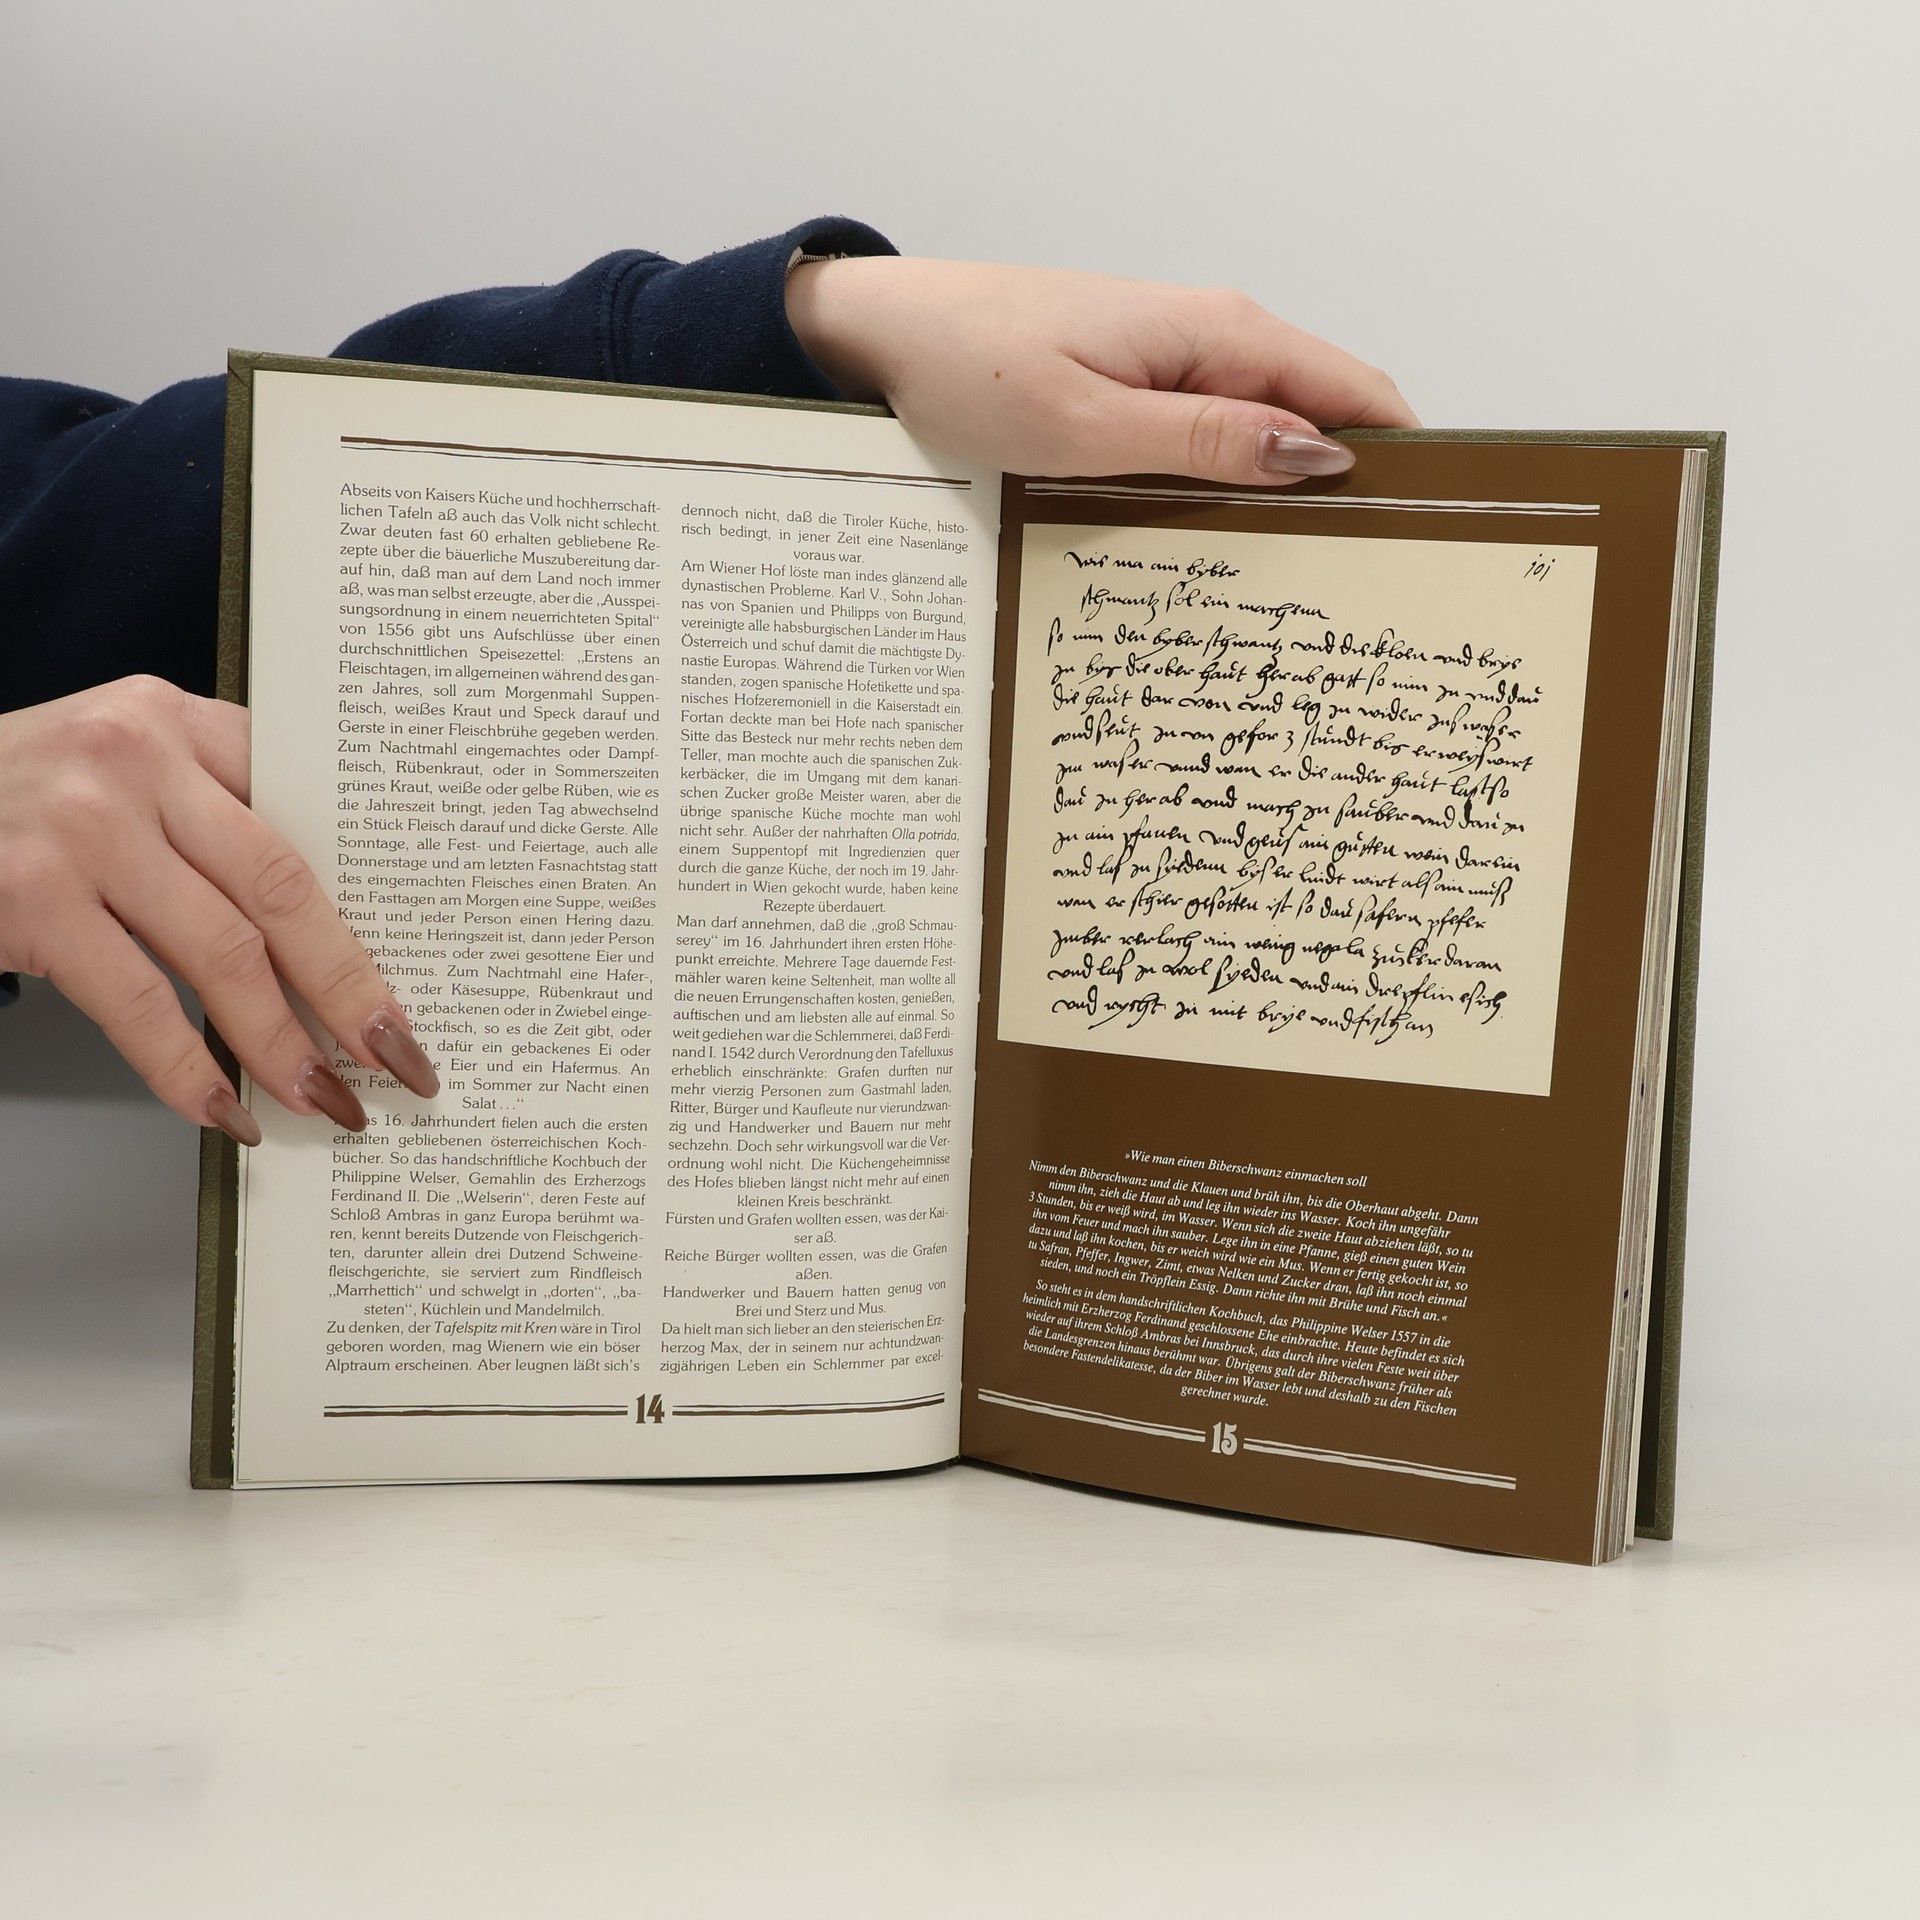 Abseits von Kaisers Küche und hochherrschaft-
lichen Tafeln aß auch das Volk nicht schlecht.
Zwar deuten fast 60 erhalten gebliebene Re-
zepte über die bäuerliche Muszubereitung dar-
auf hin, daß man auf dem Land noch immer
aß, was man selbst erzeugte, aber die „Ausspei-
sungsordnung in einem neuerrichteten Spital“
von 1556 gibt uns Aufschlüsse über einen
durchschnittlichen Speisezettel: „Erstens an
Fleischtagen, im allgemeinen während des gan-
zen Jahres, soll zum Morgenmahl Suppen-
fleisch, weißes Kraut und Speck darauf und
Gerste in einer Fleischbrühe gegeben werden.
Zum Nachtmahl eingemachtes oder Dampf-
fleisch, Rübenkraut, oder in Sommerszeiten
grünes Kraut, weiße oder gelbe Rüben, wie es
die Jahreszeit bringt, jeden Tag abwechselnd
ein Stück Fleisch darauf und dicke Gerste. Alle
Sonntage, alle Fest- und Feiertage, auch alle
Donnerstage und am letzten Fasnachtstag statt
des eingemachten Fleisches einen Braten. An
den Fasttagen am Morgen eine Suppe, weißes
Kraut und jeder Person einen Hering dazu.
Wenn keine Heringszeit ist, dann jeder Person
gebackenes oder zwei gesottene Eier und
Milchmus. Zum Nachtmahl eine Hafer-,
oder Käsesuppe, Rübenkraut und
gebackenen oder in Zwiebel einge-
Stockfisch, so es die Zeit gibt, oder
dafür ein gebackenes Ei oder
Eier und ein Hafermus. An
den im Sommer zur Nacht einen
Salat ...“
16. Jahrhundert fielen auch die ersten
erhalten gebliebenen österreichischen Koch-
bücher. So das handschriftliche Kochbuch der
Philippine Welser, Gemahlin des Erzherzogs
Ferdinand II. Die „Welserin“, deren Feste auf
Schloß Ambras in ganz Europa berühmt wa-
ren, kennt bereits Dutzende von Fleischgerich-
ten, darunter allein drei Dutzend Schweine-
fleischgerichte, sie serviert zum Rindfleisch
„Marrhettich“ und schwelgt in „dorten“, „ba-
steten“, Küchlein und Mandelmilch.
Zu denken, der Tafelspitz mit Kren wäre in Tirol
geboren worden, mag Wienern wie ein böser
Alptraum erscheinen. Aber leugnen läßt sich's
14
dennoch nicht, daß die Tiroler Küche, histo-
risch bedingt, in jener Zeit eine Nasenlänge
voraus war.
Am Wiener Hof löste man indes glänzend alle
dynastischen Probleme. Karl V., Sohn Johan-
nas von Spanien und Philipps von Burgund,
vereinigte alle habsburgischen Länder im Haus
Österreich und schuf damit die mächtigste Dy-
nastie Europas. Während die Türken vor Wien
standen, zogen spanische Hofetikette und spa-
nisches Hofzeremoniell in die Kaiserstadt ein.
Fortan deckte man bei Hofe nach spanischer
Sitte das Besteck nur mehr rechts neben dem
Teller, man mochte auch die spanischen Zuk-
kerbäcker, die im Umgang mit dem kanari-
schen Zucker große Meister waren, aber die
übrige spanische Küche mochte man wohl
nicht sehr. Außer der nahrhaften Olla potrida,
einem Suppentopf mit Ingredienzien quer
durch die ganze Küche, der noch im 19. Jahr-
hundert in Wien gekocht wurde, haben keine
Rezepte überdauert.
Man darf annehmen, daß die „groß Schmau-
serey“ im 16. Jahrhundert ihren ersten Höhe-
punkt erreichte. Mehrere Tage dauernde Fest-
mähler waren keine Seltenheit, man wollte all
die neuen Errungenschaften kosten, genießen,
auftischen und am liebsten alle auf einmal. So
weit gediehen war die Schlemmerei, daß Ferdi-
nand I. 1542 durch Verordnung den Tafelluxus
erheblich einschränkte: Grafen durften nur
mehr vierzig Personen zum Gastmahl laden,
Ritter, Bürger und Kaufleute nur vierundzwan-
zig und Handwerker und Bauern nur mehr
sechzehn. Doch sehr wirkungsvoll war die Ver-
ordnung wohl nicht. Die Küchengeheimnisse
des Hofes blieben längst nicht mehr auf einen
kleinen Kreis beschränkt.
Fürsten und Grafen wollten essen, was der Kai-
ser aß.
Reiche Bürger wollten essen, was die Grafen
aßen.
Handwerker und Bauern hatten genug von
Brei und Sterz und Mus.
Da hielt man sich lieber an den steierischen Erz-
herzog Max, der in seinem nur achtundzwan-
zigjährigen Leben ein Schlemmer par excel-
joj
wie ma ain byber
schwantz sol ein machenn
so nim den byber schwantz und die kloen und brye
jn bys die ober haut her ab gatt so nim jn und dau
die haut dar von und leg jn wider jns waser
und seut jn un gefor 3 stundt bis er weys wirt
jm waser unnd wan er die ander haut last so
dau jn her ab und mach jn sauber und dau jn
jn ain pfanen und geus ain gutten wein darein
und las jn syedenn bys er lindt wirt als ain muß
wan er schier gesotten ist so dau safern pfefer
jmber rerlach ain wenig negala zucker daran
und las jn wol syeden und ain drepflin esich
und rycht jn mit brye und fisch an
»Wie man einen Biberschwanz einmachen soll
Nimm den Biberschwanz und die Klauen und brüh ihn, bis die Oberhaut abgeht. Dann
nimm ihn, zieh die Haut ab und leg ihn wieder ins Wasser. Koch ihn ungefähr
3 Stunden, bis er weiß wird, im Wasser. Wenn sich die zweite Haut abziehen läßt, so tu
ihn vom Feuer und mach ihn sauber. Lege ihn in eine Pfanne, gieß einen guten Wein
dazu und laß ihn kochen, bis er weich wird wie ein Mus. Wenn er fertig gekocht ist, so
tu Safran, Pfeffer, Ingwer, Zimt, etwas Nelken und Zucker dran, laß ihn noch einmal
sieden, und noch ein Tröpflein Essig. Dann richte ihn mit Brühe und Fisch an.«
So steht es in dem handschriftlichen Kochbuch, das Philippine Welser 1557 in die
heimlich mit Erzherzog Ferdinand geschlossene Ehe einbrachte. Heute befindet es sich
wieder auf ihrem Schloß Ambras bei Innsbruck, das durch ihre vielen Feste weit über
die Landesgrenzen hinaus berühmt war. Übrigens galt der Biberschwanz früher als
besondere Fastendelikatesse, da der Biber im Wasser lebt und deshalb zu den Fischen
gerechnet wurde.
15